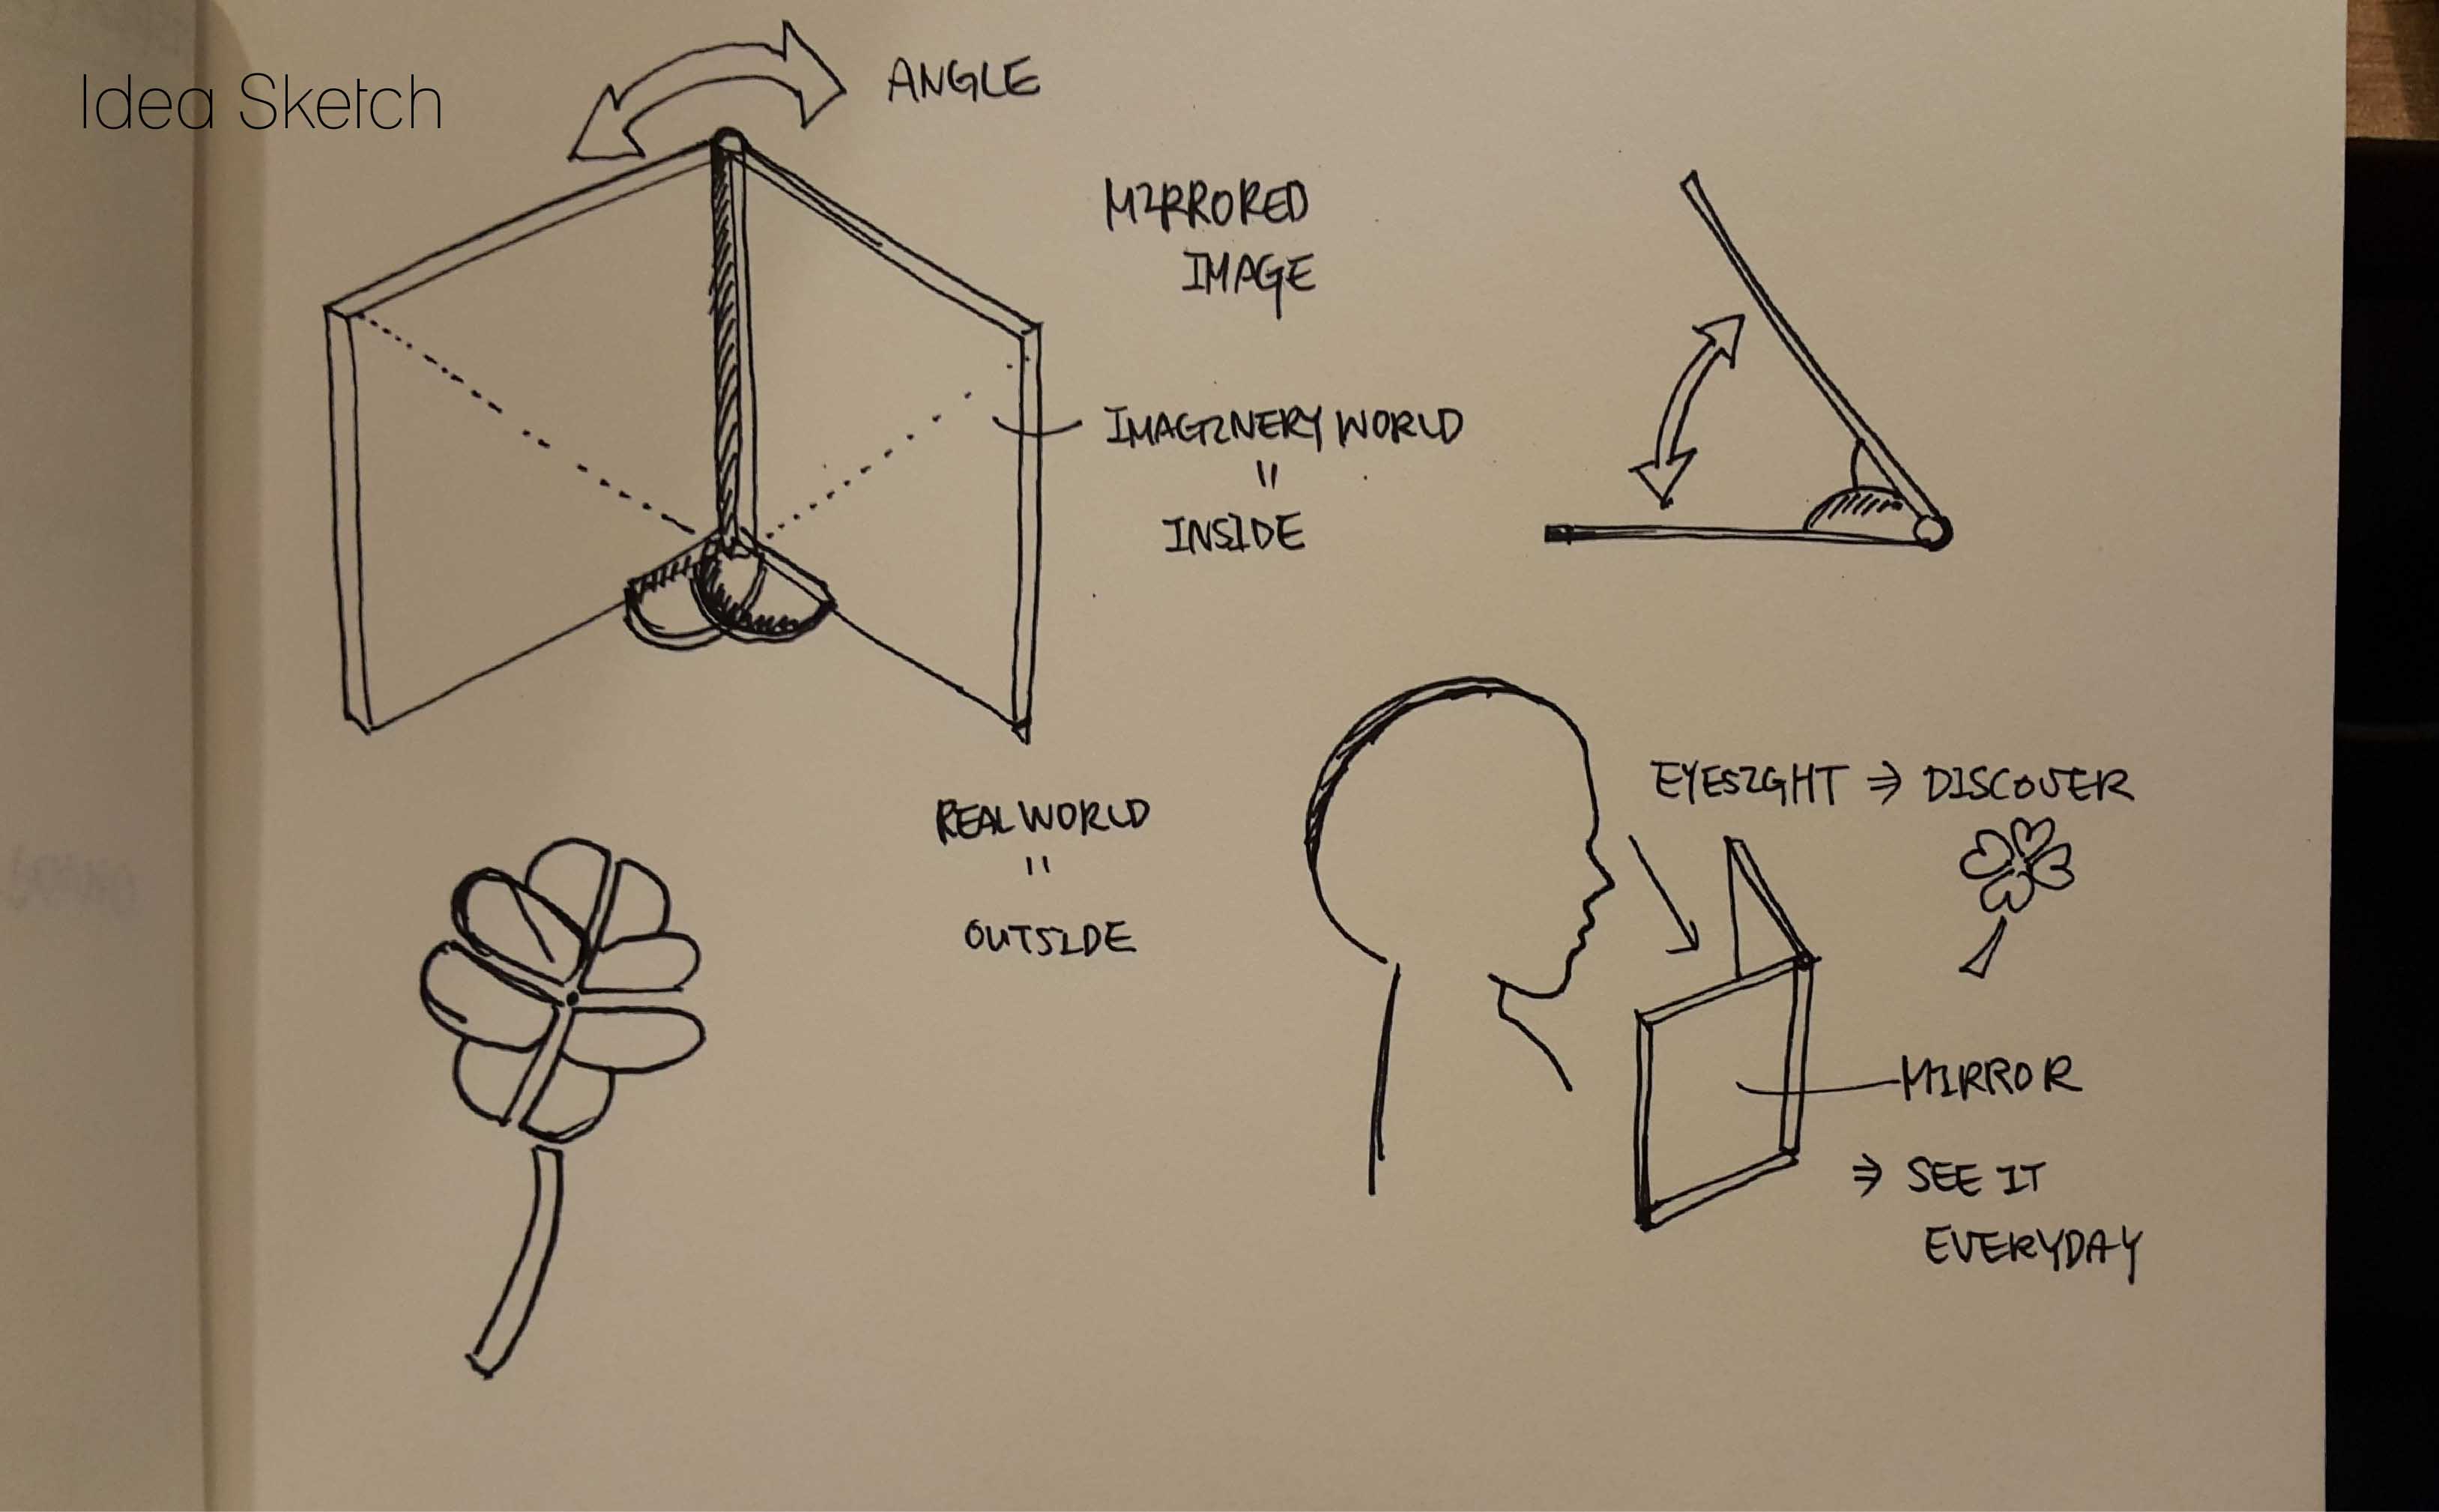 Idea Sketch
ANGLE
MIRRORED
IMAGE
IMAGINERY WORLD
"
INSIDE
REAL WORLD
"
OUTSIDE
EYESIGHT ⇒ DISCOVER
MIRROR
⇒ SEE IT
EVERYDAY